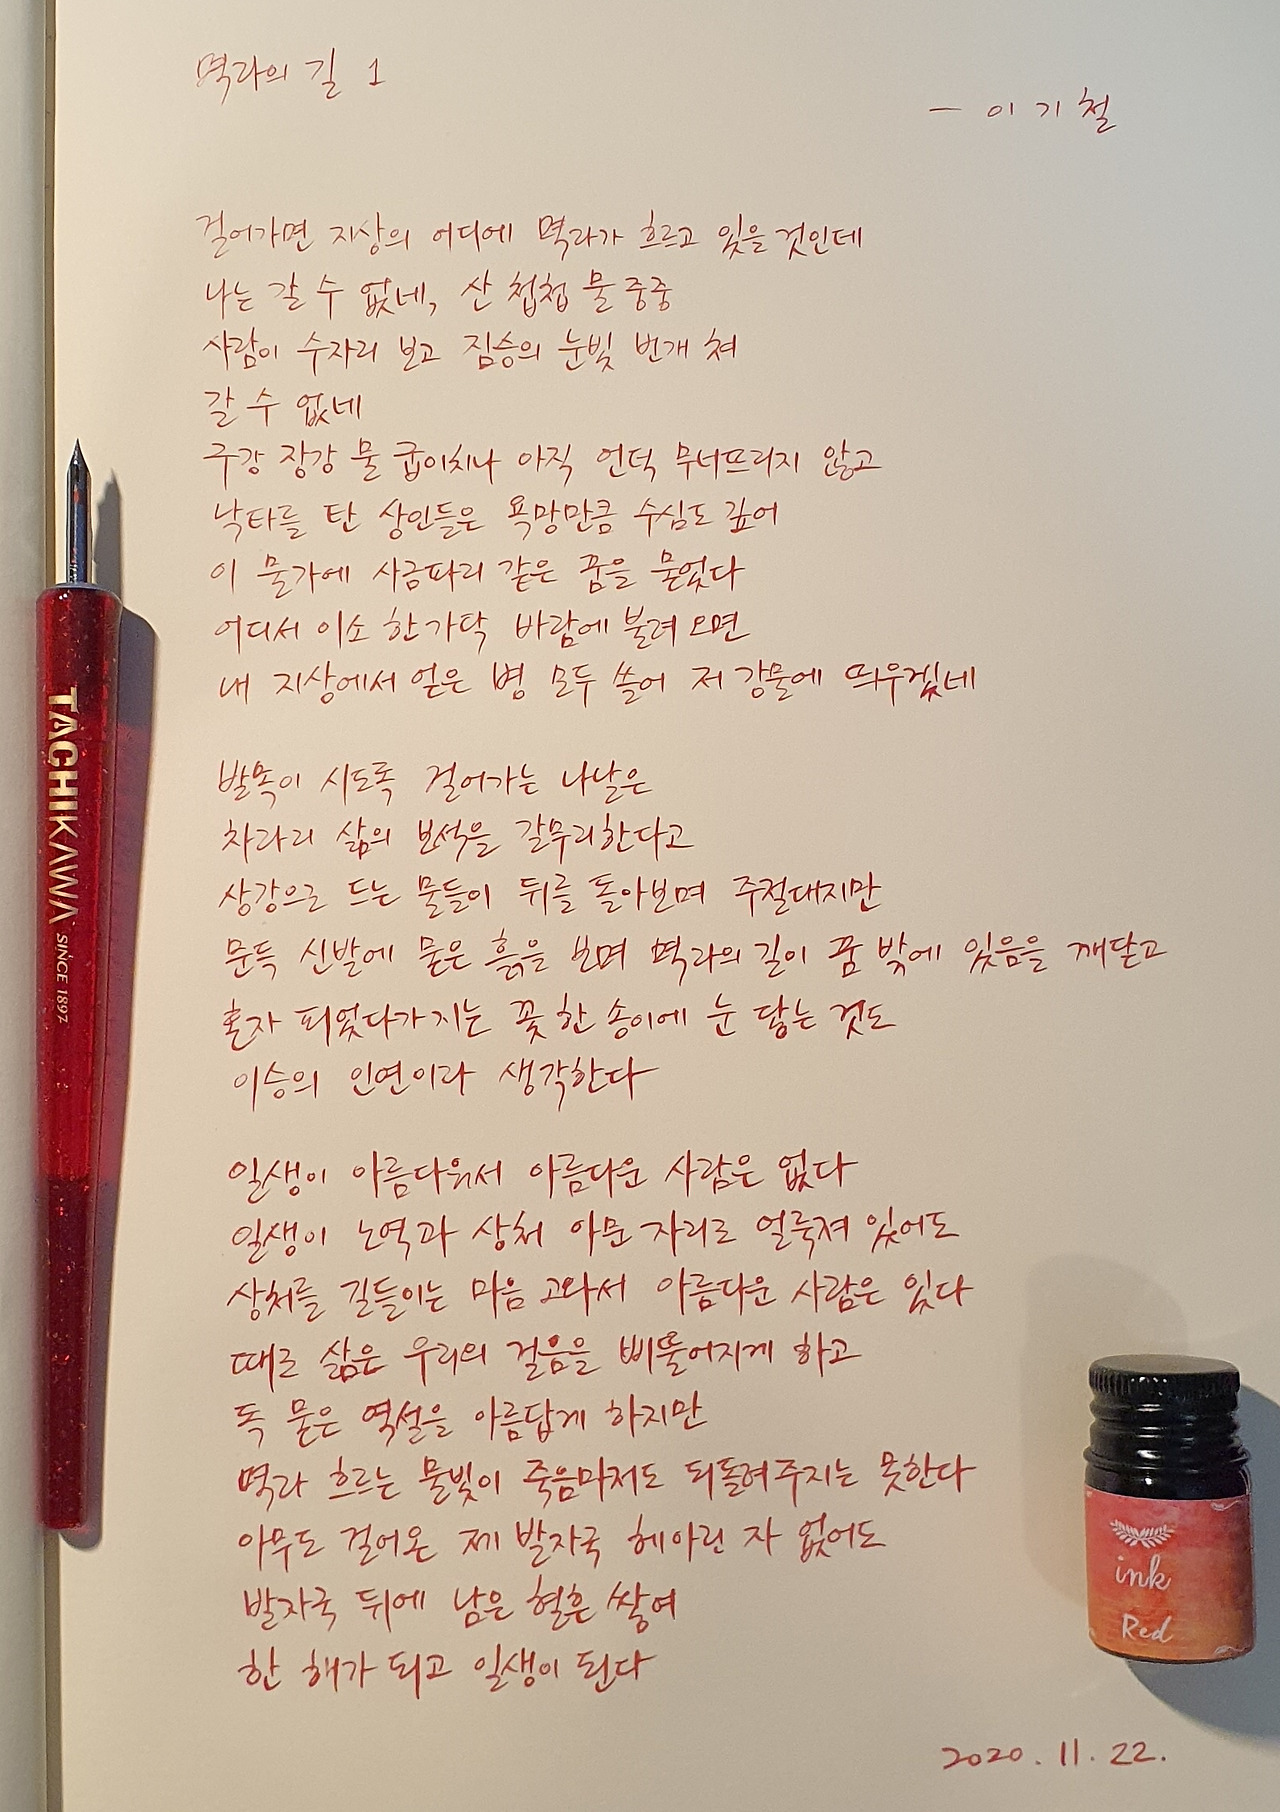 멱라의 길 1
— 이기철
걸어가면 지상의 어디에 멱라가 흐르고 있을 것인데
나는 갈 수 없네, 산 첩첩 물 중중
사람이 수자리 보고 짐승의 눈빛 번개 쳐
갈 수 없네
구강 장강 물 굽이치나 아직 언덕 무너뜨리지 않고
낙타를 탄 상인들은 욕망만큼 수심도 깊어
이 물가에 사금파리 같은 꿈을 묻었다
어디서 이소 한 가닥 바람에 불려 오면
내 지상에서 얻은 병 모두 쓸어 저 강물에 띄우겠네
발목이 시도록 걸어가는 나날은
차라리 삶의 보석을 갈무리한다고
상강으로 드는 물들이 뒤를 돌아보며 주절대지만
문득 신발에 묻은 흙을 보며 멱라의 길이 꿈 밖에 있음을 깨닫고
혼자 피었다가 지는 꽃 한 송이에 눈 닿는 것도
이승의 인연이라 생각한다
일생이 아름다워서 아름다운 사람은 없다
일생이 노역과 상처 아문 자리로 얼룩져 있어도
상처를 길들이는 마음 고와서 아름다운 사람은 있다
때로 삶은 우리의 걸음을 삐뚤어지게 하고
독 묻은 역설을 아름답게 하지만
멱라 흐르는 물빛이 죽음마저도 되돌려주지는 못한다
아무도 걸어온 제 발자국 헤아린 자 없어도
발자국 뒤에 남은 혈흔 쌓여
한 해가 되고 일생이 된다
2020. 11. 22.
TACHIKAWA SINCE 1897
ink
Red